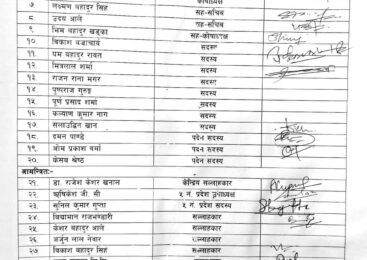 ७ लक्ष्मण बहादुर सिंह कोषाध्यक्ष
८ उदय आले सह-सचिव
९ भिम बहादुर खड्का सह-सचिव
१० विकाश बज्राचार्य सह-कोषाध्यक्ष
११ यम बहादुर रावत सदस्य
१२ मित्रलाल शर्मा सदस्य
१३ राजन राना मगर सदस्य
१४ पुष्पराज गुरुङ्ग सदस्य
१५ पूर्ण प्रसाद शर्मा सदस्य
१६ कल्याण कुमार नाग सदस्य
१७ सलाउद्दिन खान सदस्य
१८ दमन पाण्डे पदेन सदस्य
१९. ओम प्रकाश वर्मा पदेन सदस्य
२०. केशव श्रेष्ठ पदेन सदस्य
आमन्त्रितः-
२१. डा. राजेश केशर खनाल केन्द्रिय सल्लाहकार
२२. ऋषिकेश जी. सी ५ नं. प्रदेश उपाध्यक्ष
२३. सुनिल कुमार गुप्ता ५ नं. प्रदेश सदस्य
२४ विद्यामान राजभण्डारी सल्लाहकार
२५ केशर बहादुर आले सल्लाहकार
२६ अर्जुन लाल नेवार सल्लाहकार
२७ विकाश बहादुर सिंह सल्लाहकार